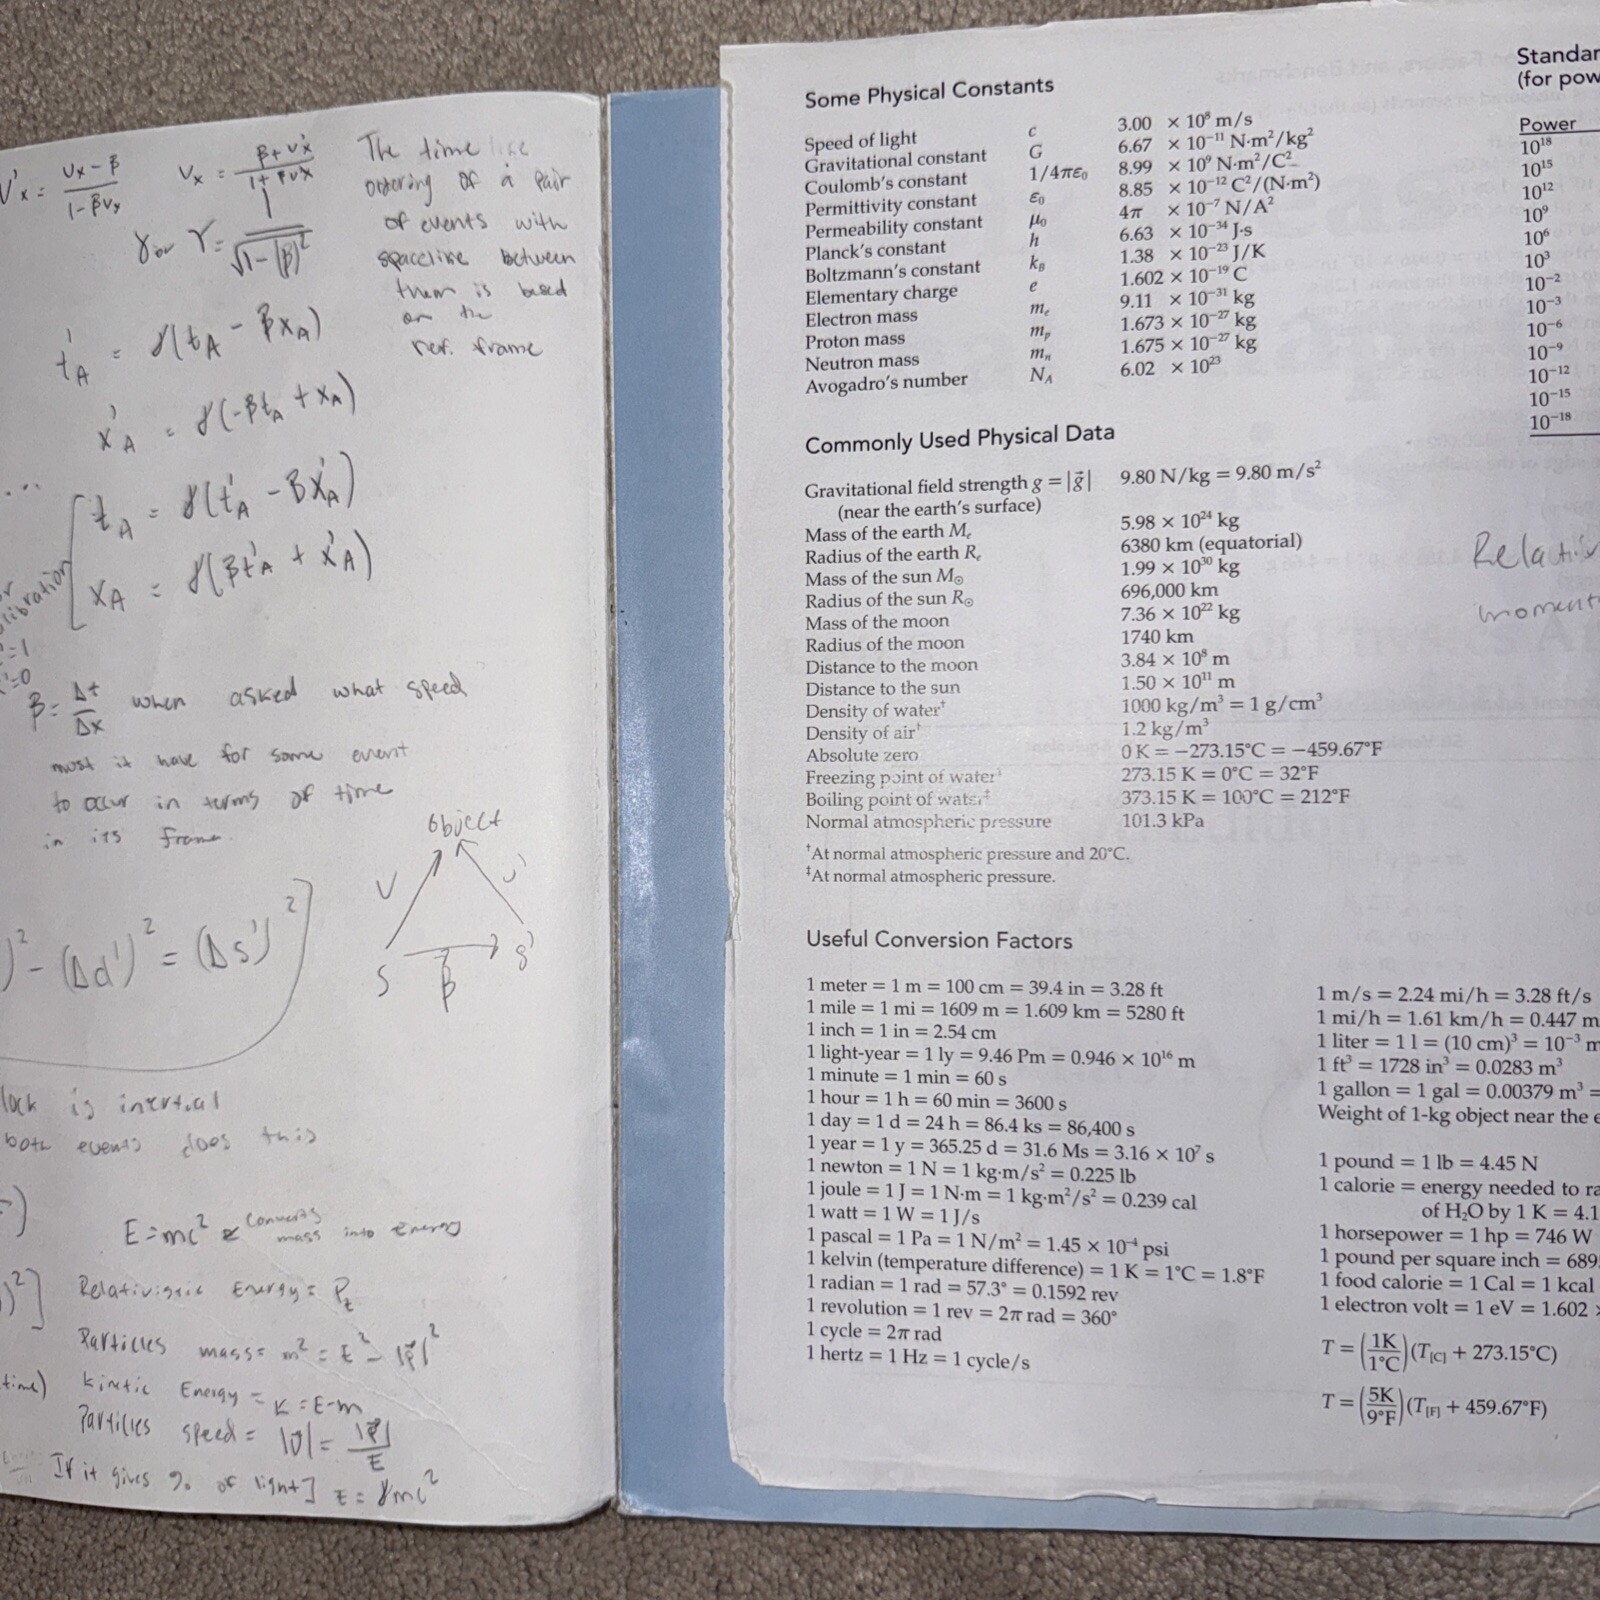 V'x = Vx - β / 1 - βVx
Vx = β + V'x / 1 + βVx
The time like
ordering of a pair
of events with
spacelike between
them is based
on the
ref. frame
γ or γ = 1 / √1 - |β|²
t'A = γ(tA - βxA)
x'A = γ(-βtA + xA)
tA = γ(t'A - βx'A)
xA = γ(βt'A + x'A)
=1
'=0
β = Δt / Δx when asked what speed
must it have for some event
to occur in terms of time
in its frame.
Object
V
S
β
)² - (Δd')² = (Δs')²
lock is inertial
both events does this
E = mc² converts
mass into energy
Relativistic Energy = Pt
)²]
Particles mass = m² = E² - |p⃗|²
time) kinetic Energy = K = E-m
Particles speed = |v⃗| = |p⃗| / E
If it gives % of light] E = γmc²
Some Physical Constants
Speed of light c 3.00 × 10⁸ m/s
Gravitational constant G 6.67 × 10⁻¹¹ N·m²/kg²
Coulomb's constant 1/4πε₀ 8.99 × 10⁹ N·m²/C²
Permittivity constant ε₀ 8.85 × 10⁻¹² C²/(N·m²)
Permeability constant μ₀ 4π × 10⁻⁷ N/A²
Planck's constant h 6.63 × 10⁻³⁴ J·s
Boltzmann's constant kB 1.38 × 10⁻²³ J/K
Elementary charge e 1.602 × 10⁻¹⁹ C
Electron mass me 9.11 × 10⁻³¹ kg
Proton mass mp 1.673 × 10⁻²⁷ kg
Neutron mass mn 1.675 × 10⁻²⁷ kg
Avogadro's number NA 6.02 × 10²³
Standar
(for pow
Power
10¹⁸
10¹⁵
10¹²
10⁹
10⁶
10³
10⁻²
10⁻³
10⁻⁶
10⁻⁹
10⁻¹²
10⁻¹⁵
10⁻¹⁸
Commonly Used Physical Data
Gravitational field strength g = |g⃗| 9.80 N/kg = 9.80 m/s²
(near the earth's surface)
Mass of the earth Me 5.98 × 10²⁴ kg
Radius of the earth Re 6380 km (equatorial)
Mass of the sun M⊙ 1.99 × 10³⁰ kg
Radius of the sun R⊙ 696,000 km
Mass of the moon 7.36 × 10²² kg
Radius of the moon 1740 km
Distance to the moon 3.84 × 10⁸ m
Distance to the sun 1.50 × 10¹¹ m
Density of water† 1000 kg/m³ = 1 g/cm³
Density of air† 1.2 kg/m³
Absolute zero 0 K = −273.15°C = −459.67°F
Freezing point of water‡ 273.15 K = 0°C = 32°F
Boiling point of water‡ 373.15 K = 100°C = 212°F
Normal atmospheric pressure 101.3 kPa
†At normal atmospheric pressure and 20°C.
‡At normal atmospheric pressure.
Relativ
moment
Useful Conversion Factors
1 meter = 1 m = 100 cm = 39.4 in = 3.28 ft
1 mile = 1 mi = 1609 m = 1.609 km = 5280 ft
1 inch = 1 in = 2.54 cm
1 light-year = 1 ly = 9.46 Pm = 0.946 × 10¹⁶ m
1 minute = 1 min = 60 s
1 hour = 1 h = 60 min = 3600 s
1 day = 1 d = 24 h = 86.4 ks = 86,400 s
1 year = 1 y = 365.25 d = 31.6 Ms = 3.16 × 10⁷ s
1 newton = 1 N = 1 kg·m/s² = 0.225 lb
1 joule = 1 J = 1 N·m = 1 kg·m²/s² = 0.239 cal
1 watt = 1 W = 1 J/s
1 pascal = 1 Pa = 1 N/m² = 1.45 × 10⁻⁴ psi
1 kelvin (temperature difference) = 1 K = 1°C = 1.8°F
1 radian = 1 rad = 57.3° = 0.1592 rev
1 revolution = 1 rev = 2π rad = 360°
1 cycle = 2π rad
1 hertz = 1 Hz = 1 cycle/s
1 m/s = 2.24 mi/h = 3.28 ft/s
1 mi/h = 1.61 km/h = 0.447 m
1 liter = 1 l = (10 cm)³ = 10⁻³ m
1 ft³ = 1728 in³ = 0.0283 m³
1 gallon = 1 gal = 0.00379 m³ =
Weight of 1-kg object near the e
1 pound = 1 lb = 4.45 N
1 calorie = energy needed to ra
of H₂O by 1 K = 4.1
1 horsepower = 1 hp = 746 W
1 pound per square inch = 689
1 food calorie = 1 Cal = 1 kcal
1 electron volt = 1 eV = 1.602 ×
T = (1K / 1°C)(T[C] + 273.15°C)
T = (5K / 9°F)(T[F] + 459.67°F)